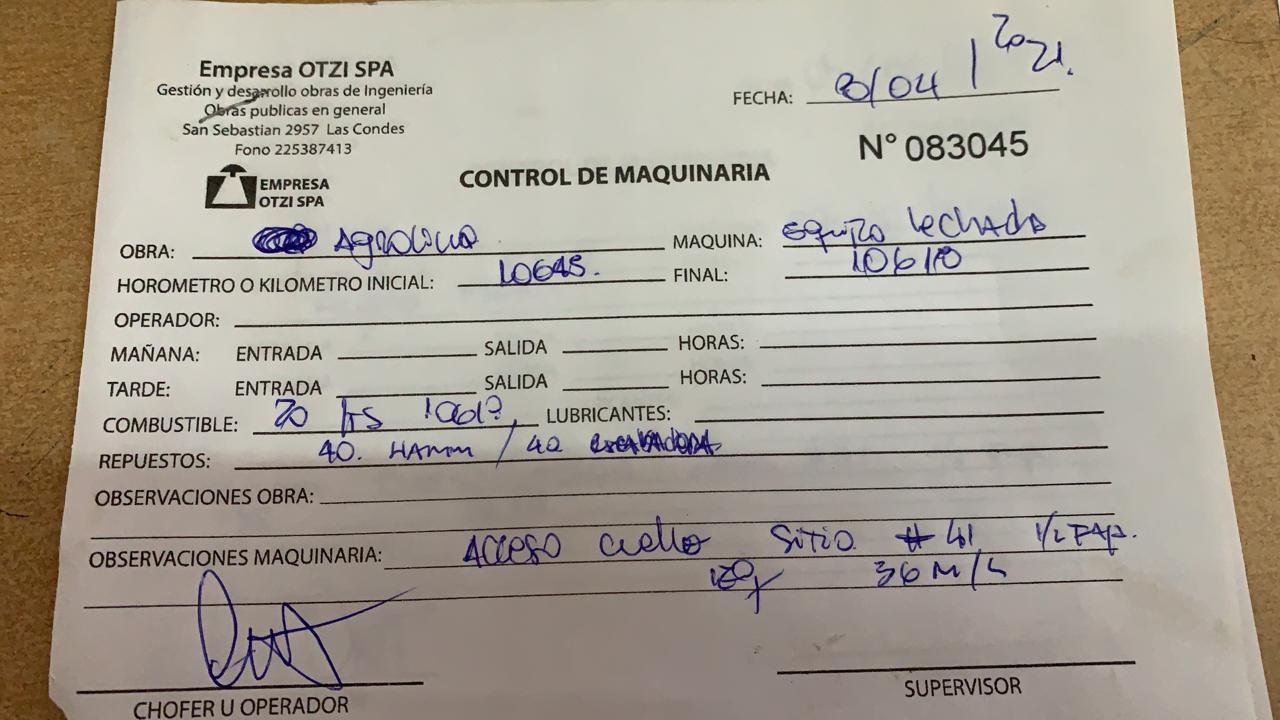 Empresa OTZI SPA
Gestión y desarrollo obras de Ingeniería
Obras publicas en general
San Sebastian 2957 Las Condes
Fono 225387413
EMPRESA
OTZI SPA
FECHA: 8/04/2021.
N° 083045
CONTROL DE MAQUINARIA
OBRA: MAQUINA: Equipo lechada
HOROMETRO O KILOMETRO INICIAL: 10645. FINAL:
OPERADOR:
MAÑANA: ENTRADA SALIDA HORAS:
TARDE: ENTRADA SALIDA HORAS:
COMBUSTIBLE: LUBRICANTES:
REPUESTOS: 40. HAMM / 40
OBSERVACIONES OBRA:
OBSERVACIONES MAQUINARIA: ACCESO SITIO # 41
36 M/L
CHOFER U OPERADOR
SUPERVISOR